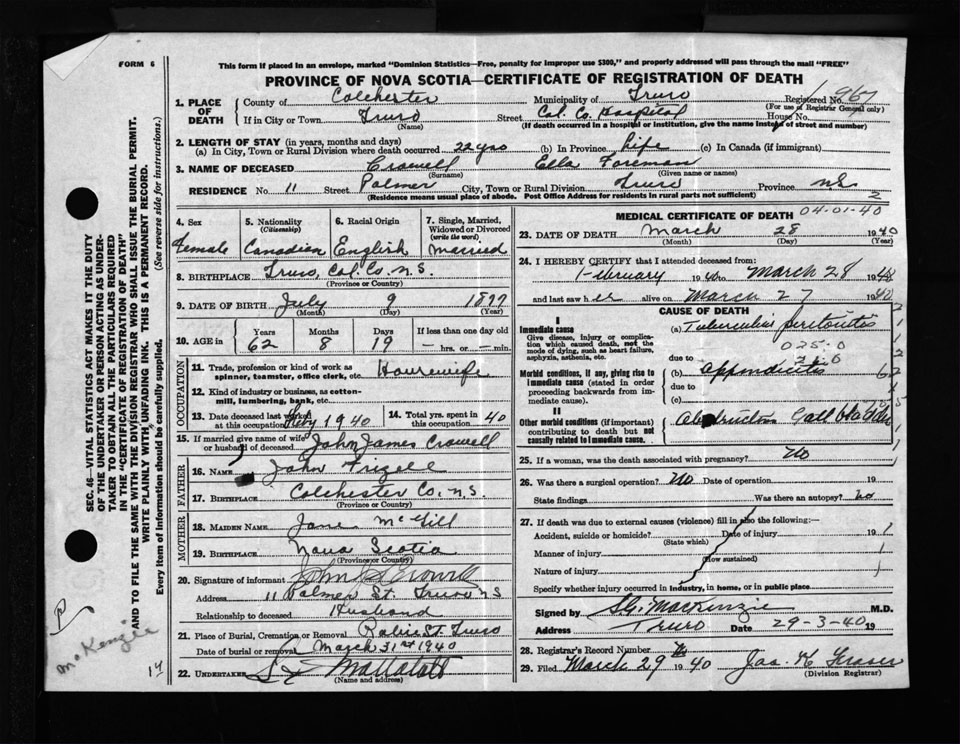 FORM 6
This form if placed in an envelope, marked "Dominion Statistics—Free, penalty for improper use $300," and properly addressed will pass through the mail "FREE"
PROVINCE OF NOVA SCOTIA—CERTIFICATE OF REGISTRATION OF DEATH
1. PLACE OF DEATH County of Colchester Municipality of Truro Registered No. 967
(For use of Registrar General only)
If in City or Town Truro Street Col. Co. Hospital House No.
(Name) (If death occurred in a hospital or institution, give the name instead of street and number)
2. LENGTH OF STAY (in years, months and days)
(a) In City, Town or Rural Division where death occurred 22 yrs (b) In Province Life (c) In Canada (if immigrant)
3. NAME OF DECEASED Crowell Ella Foreman
(Surname) (Given name or names)
RESIDENCE No. 11 Street Palmer City, Town or Rural Division Truro Province N.S.
(Residence means usual place of abode. Post Office Address for residents in rural parts not sufficient) 2
4. Sex Female
5. Nationality (Citizenship) Canadian
6. Racial Origin English
7. Single, Married, Widowed or Divorced (write the word) Married
8. BIRTHPLACE Truro, Col. Co. N.S.
(Province or Country)
9. DATE OF BIRTH July 9 1877
(Month) (Day) (Year)
10. AGE in Years 62 Months 8 Days 19 If less than one day old — hrs. or — min.
OCCUPATION
11. Trade, profession or kind of work as spinner, teamster, office clerk, etc. Housewife
12. Kind of industry or business, as cotton-mill, lumbering, bank, etc.
13. Date deceased last worked at this occupation Feby 1940
14. Total yrs. spent in this occupation 40
15. If married give name of wife or husband of deceased John James Crowell
FATHER
16. Name John Frizell
17. BIRTHPLACE Colchester Co. N.S.
(Province or Country)
MOTHER
18. MAIDEN NAME Jane McGill
19. BIRTHPLACE Nova Scotia
(Province or Country)
20. Signature of informant John J Crowell
Address 11 Palmer St. Truro N.S
Relationship to deceased Husband
21. Place of Burial, Cremation or Removal Robie St. Truro
Date of burial or removal March 31st 1940
22. UNDERTAKER
(Name and address)
MEDICAL CERTIFICATE OF DEATH 04-01-40
23. DATE OF DEATH March 28 1940
(Month) (Day) (Year)
24. I HEREBY CERTIFY that I attended deceased from:
February 1940 to March 28 1940
and last saw her alive on March 27 1940
CAUSE OF DEATH
I
Immediate cause
Give disease, injury or complication which caused death, not the mode of dying, such as heart failure, asphyxia, asthenia, etc.
(a) Tubercular peritonitis
025-0
due to
Morbid conditions, if any, giving rise to immediate cause (stated in order proceeding backwards from immediate cause).
(b) appendicitis
due to
(c)
II
Other morbid conditions (if important) contributing to death but not causally related to immediate cause.
Obstruction Gall bladder
25. If a woman, was the death associated with pregnancy? No
26. Was there a surgical operation? No Date of operation 19
State findings Was there an autopsy? no
27. If death was due to external causes (violence) fill in also the following:—
Accident, suicide or homicide? Date of injury 19
(State which)
Manner of injury
(How sustained)
Nature of injury
Specify whether injury occurred in industry, in home, or in public place
Signed by S.G. MacKenzie M.D.
Address Truro Date 29-3-40 19
28. Registrar's Record Number
29. Filed March 29 1940 Jas. K Fraser
(Division Registrar)
SEC. 46—VITAL STATISTICS ACT MAKES IT THE DUTY
OF THE UNDERTAKER OR PERSON ACTING AS UNDER-
TAKER TO OBTAIN ALL THE PARTICULARS REQUIRED
IN THE "CERTIFICATE OF REGISTRATION OF DEATH"
AND TO FILE THE SAME WITH THE DIVISION REGISTRAR WHO SHALL ISSUE THE BURIAL PERMIT.
WRITE PLAINLY WITH UNFADING INK. THIS IS A PERMANENT RECORD.
Every item of information should be carefully supplied. (See reverse side for instructions.)
P
McKenzie
14